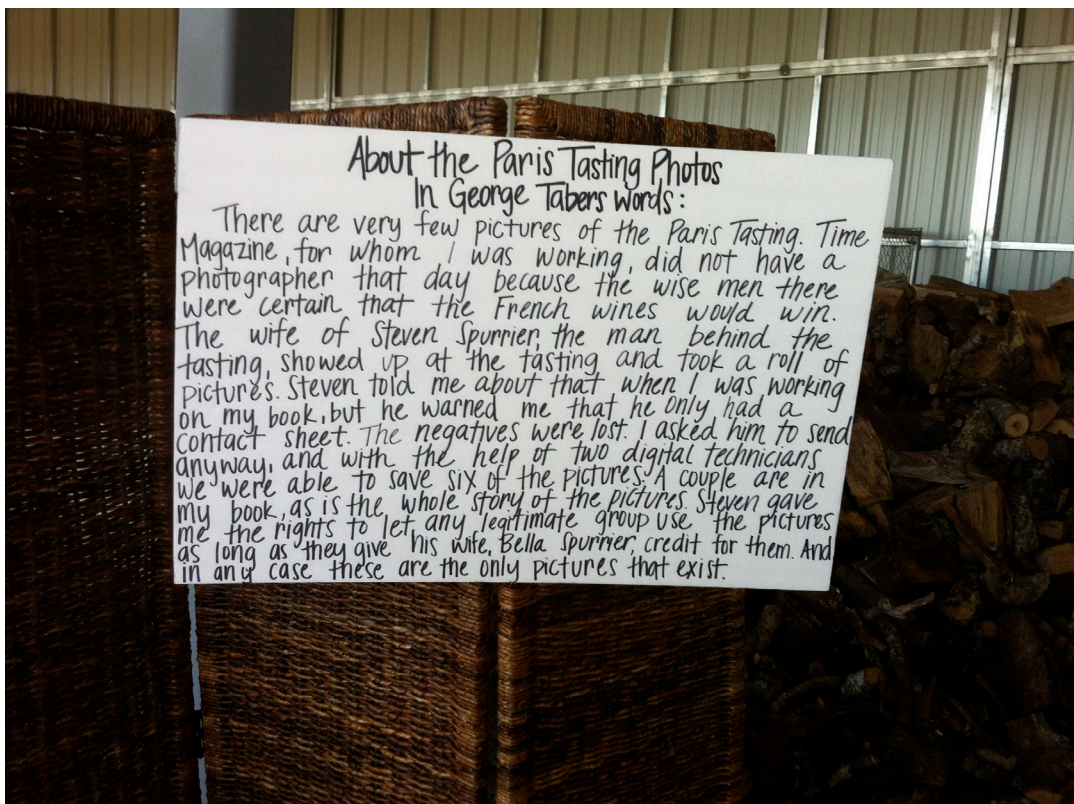 About the Paris Tasting Photos
In George Tabers words:
There are very few pictures of the Paris Tasting. Time
Magazine, for whom I was working, did not have a
photographer that day because the wise men there
were certain that the French wines would win.
The wife of Steven Spurrier, the man behind the
tasting, showed up at the tasting and took a roll of
pictures. Steven told me about that when I was working
on my book, but he warned me that he only had a
contact sheet. The negatives were lost. I asked him to send
anyway, and with the help of two digital technicians
we were able to save six of the pictures. A couple are in
my book, as is the whole story of the pictures. Steven gave
me the rights to let any legitimate group use the pictures
as long as they give his wife, Bella Spurrier, credit for them. And
in any case these are the only pictures that exist.